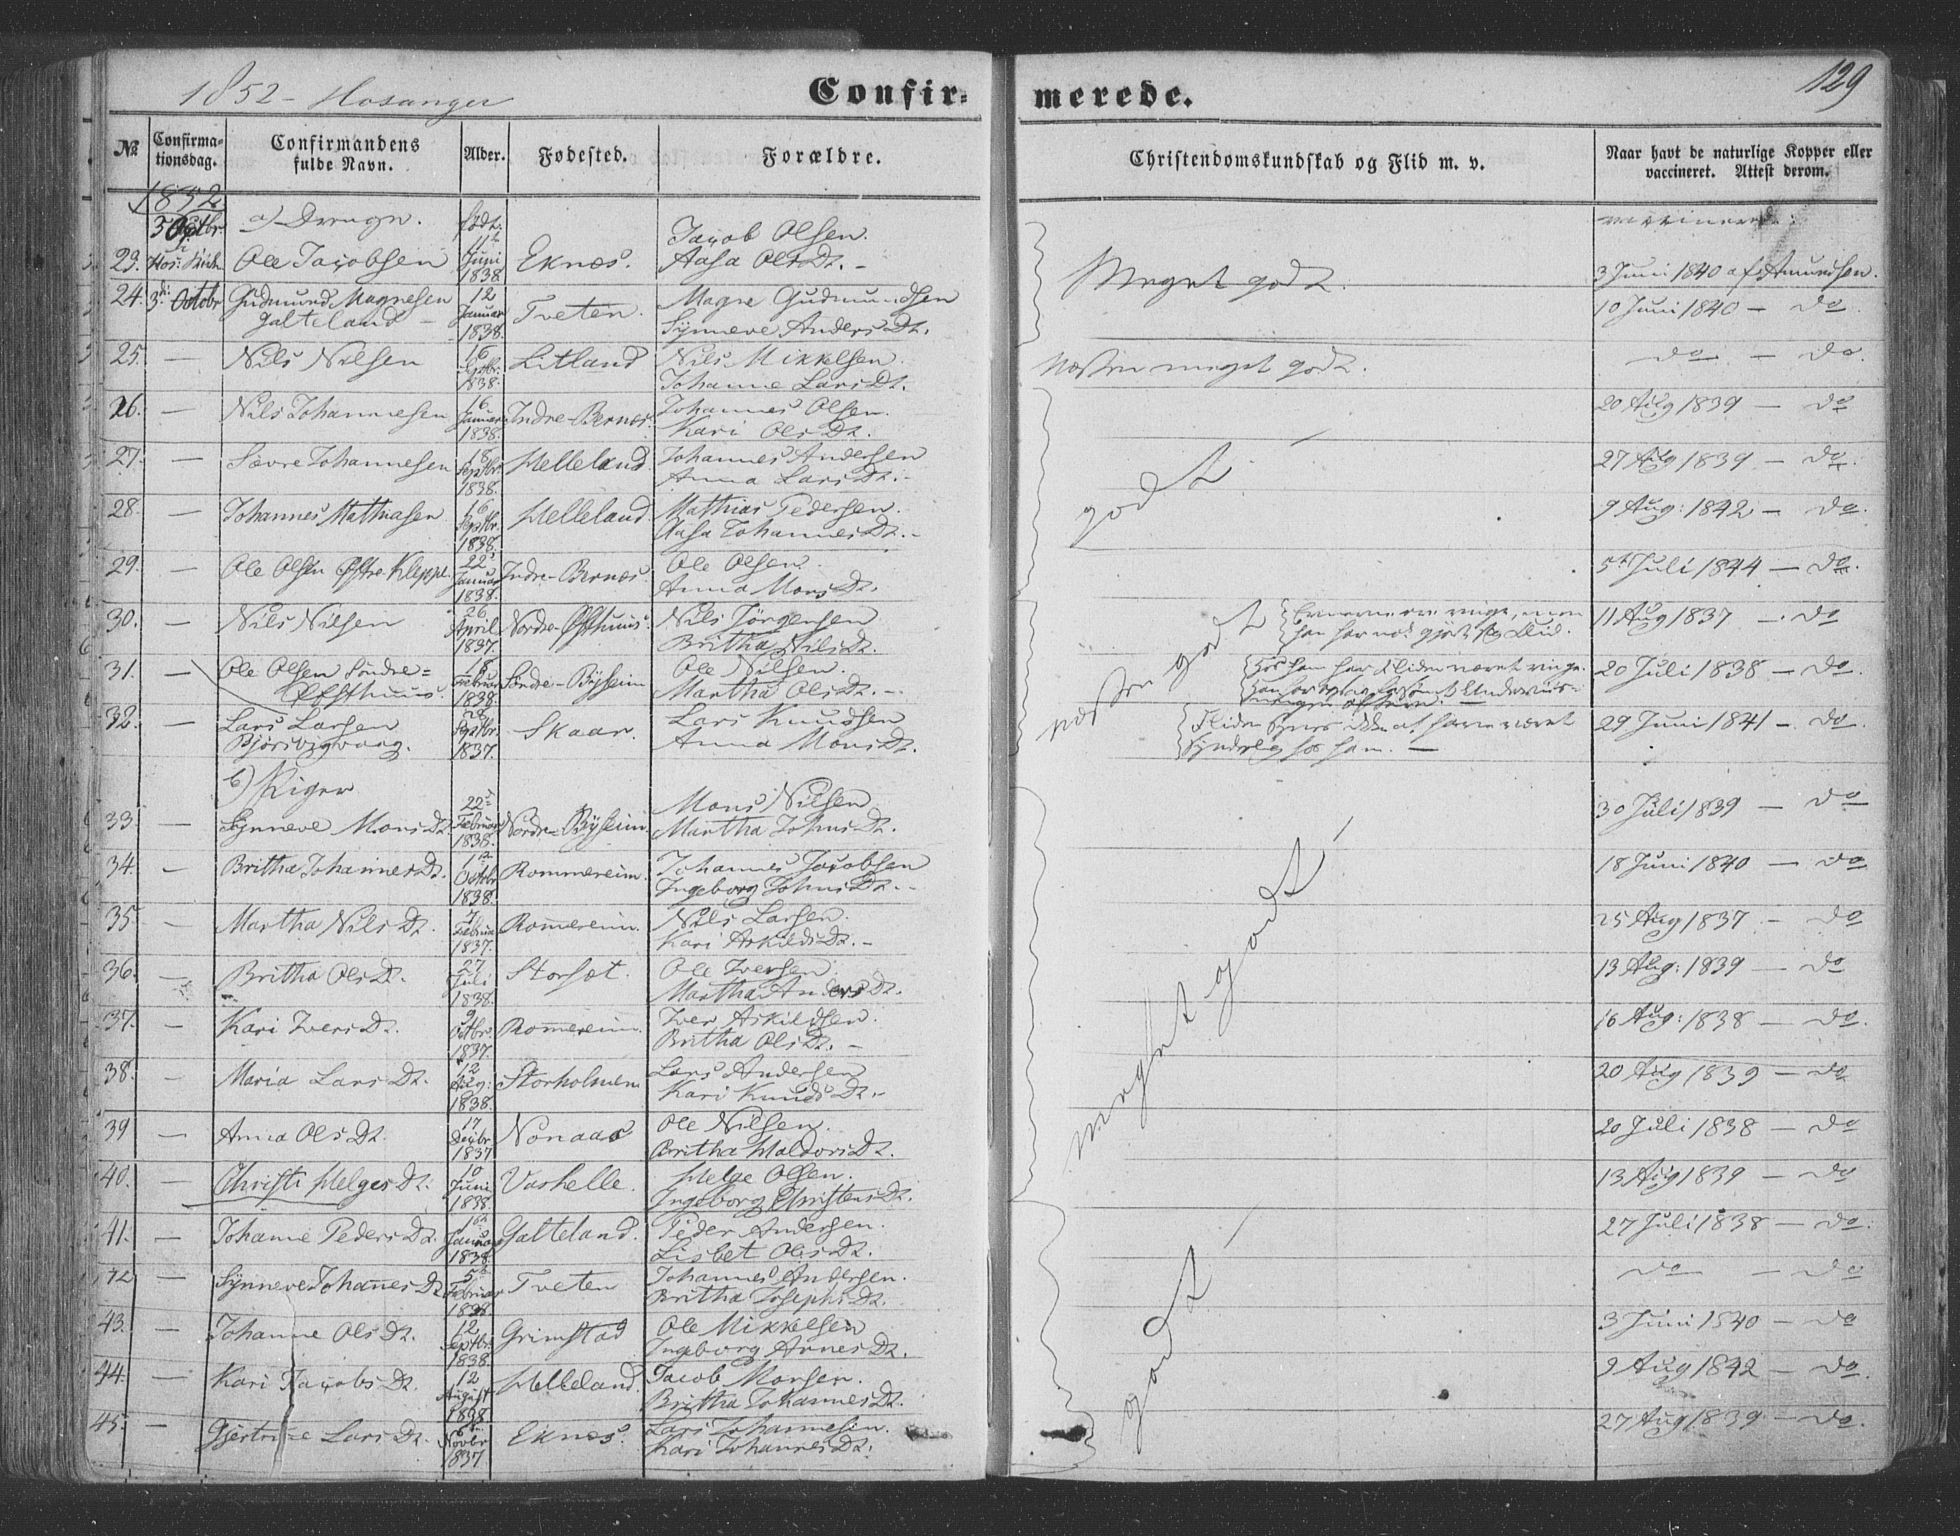 1852 - Hosanger
Confir= merede.
129
No
Confirma-
tionsdag.
Confirmandens
fulde Navn.
Alder.
Fødested.
Forældre.
Christendomskundskab og Flid m. v.
Naar havt de naturlige Kopper eller
vaccineret. Attest derom.
1852
a) Drenge.
født.
vaccineret:
23. Ole Jacobsen 11te Juni 1838 Eknæs. Jacob Olsen. Aasa OlsDt. - Meget godt. 3 Juni 1840 af Amundsen.
24. 3die Octobr Gudmund Magnesen Galteland - 12 Januar 1838. Tveten. Magne Gudmundsen Synneve AndersDt. 10 Juni 1840 - do
25. - Nils Nilsen 16 Septbr. 1838. Litland Nils Mikkelsen. Johanne LarsDt. Næsten meget godt. do - do.
26. - Nils Johannesen 16 Januar 1838. Indre-Bernæs. Johannes Olsen. Kari OlsDt. godt 20 Aug 1839 - do
27. - Sævre Johannesen 18 Septbr. 1838. Helleland Johannes Andersen Anna LarsDt. - 27 Aug 1839 - do.
28. - Johannes Mathiasen 16 Septbr. 1838. Helleland. Mathias Pedersen. Aasa JohannesDt. - 9 Aug: 1842 - do.
29. - Ole Olsen Østre-Kleppe 22 Januar 1838. Indre-Bernæs. Ole Olsen. Anna MonsDt. 5te Juli 1844 - do.
30. - Nils Nilsen 26 April 1837. Nordre-Østhuus. Nils Jörgensen Britha NilsDt. næsten godt 11 Aug 1837 - do
31. - Ole Olsen Söndre= 18 Februar 1838. Söndre-Byseim Ole Nilsen. Martha OlsDt. - 20 Juli 1838 - do
32. - Lars Larsen Bjørsvigvaag. 28 Septbr. 1837. Skaar. Lars Knudsen Anna MonsDt. 29 Juni 1841 - do.
b) Piger
33. - Synneve MonsDt. 22de Februar 1838. Nordre-Byseim. Mons Nilsen Martha JohnsDt. meget godt 30 Juli 1839 - do
34. - Britha JohannesDt. 1te Octbr 1838. Rommereim. Johannes Jacobsen Ingeborg JohnsDt. - 18 Juni 1840 - do
35 - Martha NilsDt. 7 Februar 1837. Romereim. Nils Larsen. Kari AskildsDt. - 25 Aug 1837 - do
36. - Britha OlsDt. 27 Juli 1838. Storset. Ole Iversen. Martha AndersDt. 13 Aug: 1839 - do
37. - Kari IversDt. 9 Octbr 1837. Romereim. Iver Askildsen. Britha OlsDt. - 16 Aug: 1838 - do.
38. - Maria LarsDt. 12 Aug: 1838. Storholmen Lars Andersen Kari KnudsDt. - 20 Aug 1839 - do
39 - Anna OlsDt. 17 Decbr 1837 Nonaas Ole Nilsen. Britha HaldorsDt. 20 Juli 1838 - do
40. - Christi HelgesDt. 10 Juni 1838. Vashelle. Helge Olsen. Ingeborg ChristensDt. 13 Aug 1839 - do
41. - Johanne PedersDt. 1te Januar 1838. Galteland. Peder Andersen. Lisbet OlsDt. godt 27 Juli 1838 - do.
42 - Synneve JohannesDt 5te Februar 1838 Tveten Johannes Andersen. Britha JosephsDt. do - do
43. - Johanne OlsDt. 12 Septbr. 1838. Grimstad Ole Mikkelsen Ingeborg ArnesDt. 3 Juni 1840 - do
44. - Kari JacobsDt. 12 August 1838. Helleland. Jacob Monsen. Britha JohannesDt. 9 Aug 1842 - do.
45. - Gjertrue LarsDt. Novbr 1837 Eknæs. Lars Johannesen. Kari JohannesDt. 27 Aug 1839 - do.